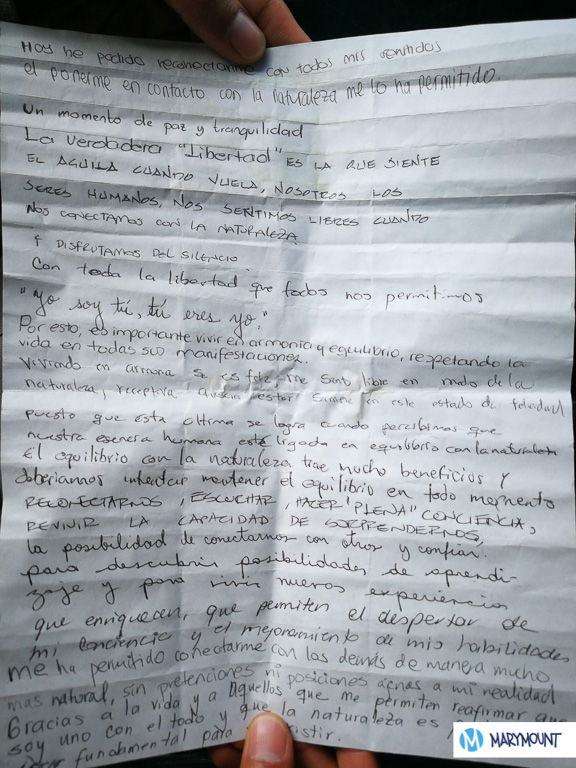 Hoy he podido reconectarme con todos mis sentidos
el ponerme en contacto con la naturaleza me lo ha permitido.
Un momento de paz y tranquilidad
La verdadera "Libertad" ES LA QUE SIENTE
EL AGUILA CUANDO VUELA, NOSOTROS LOS
SERES HUMANOS, NOS SENTIMOS LIBRES CUANDO
NOS CONECTAMOS CON LA NATURALEZA
Y DISFRUTAMOS DEL SILENCIO.
Con toda la libertad que todos nos permitimos
"Yo soy tú, tú eres yo."
Por esto, es importante vivir en armonía y equilibrio, respetando la
vida en todas sus manifestaciones.
Viviendo en armonia se es feliz, me siento libre en medio de la
naturaleza, receptiva estar siempre en este estado de felicidad
puesto que esta última se logra cuando percibimos que
nuestra esencia humana esté ligada en equilibrio con la naturaleza
El equilibrio con la naturaleza trae mucho beneficios y
deberiamos intentar mantener el equilibrio en todo momento
RECONECTARNOS, ESCUCHAR, HACER "PLENA" CONCIENCIA,
REVIVIR LA CAPACIDAD DE SORPRENDERNOS,
la posibilidad de conectarnos con otros y confiar.
para descubrir posibilidades de aprendi-
zaje y para vivir nuevas experiencias
que enriquecen, que permiten el despertar de
mi conciencia y el mejoramiento de mis habilidades
me ha permitido conectarme con los demás de manera mucho
mas natural, sin pretenciones ni posiciones a mi realidad
Gracias a la vida y a Aquellos que me permiten reafirmar que
soy uno con el todo y que la naturaleza es
fundamental para
MARYMOUNT